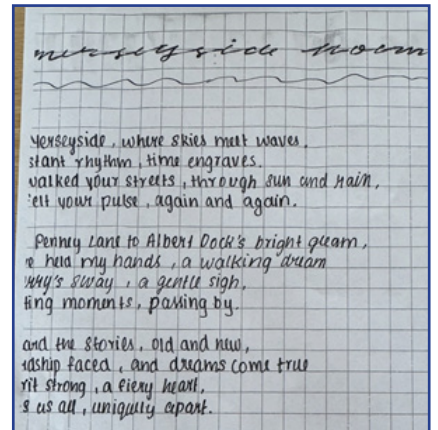 merseyside poem
yerseyside, where skies melt waves.
stant rhythm, time engraves.
walked your streets, through sun and rain,
elt your pulse, again and again.
Penney Lane to Albert Dock's bright gleam,
e held my hands, a walking dream
rry's sway, a gentle sigh,
ting moments, passing by.
and the stories, old and new,
dship faced, and dreams come true
rit strong, a fiery heart,
s us all, uniquely apart.